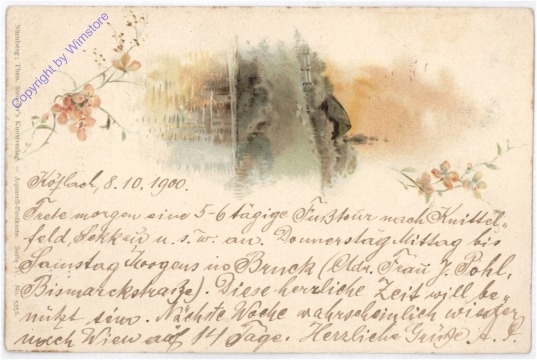 Copyright by Wimstore
Nürnberg: Theo. Stroefer's Kunstverlag. — Aquarell-Postkarte.
Köflach, 8. 10. 1900.
Trete morgen eine 5-6 tägige Fußtour nach Knittel-
feld, Sekkau u. s. w. an. Donnerstag Mittag bis
Samstag Morgens in Bruck (Adr. Frau J. Pohl,
Bismarckstraße). Diese herrliche Zeit will be-
nützt sein. Nächste Woche wahrscheinlich wieder
nach Wien auf 14 Tage. Herzliche Grüße A. S.